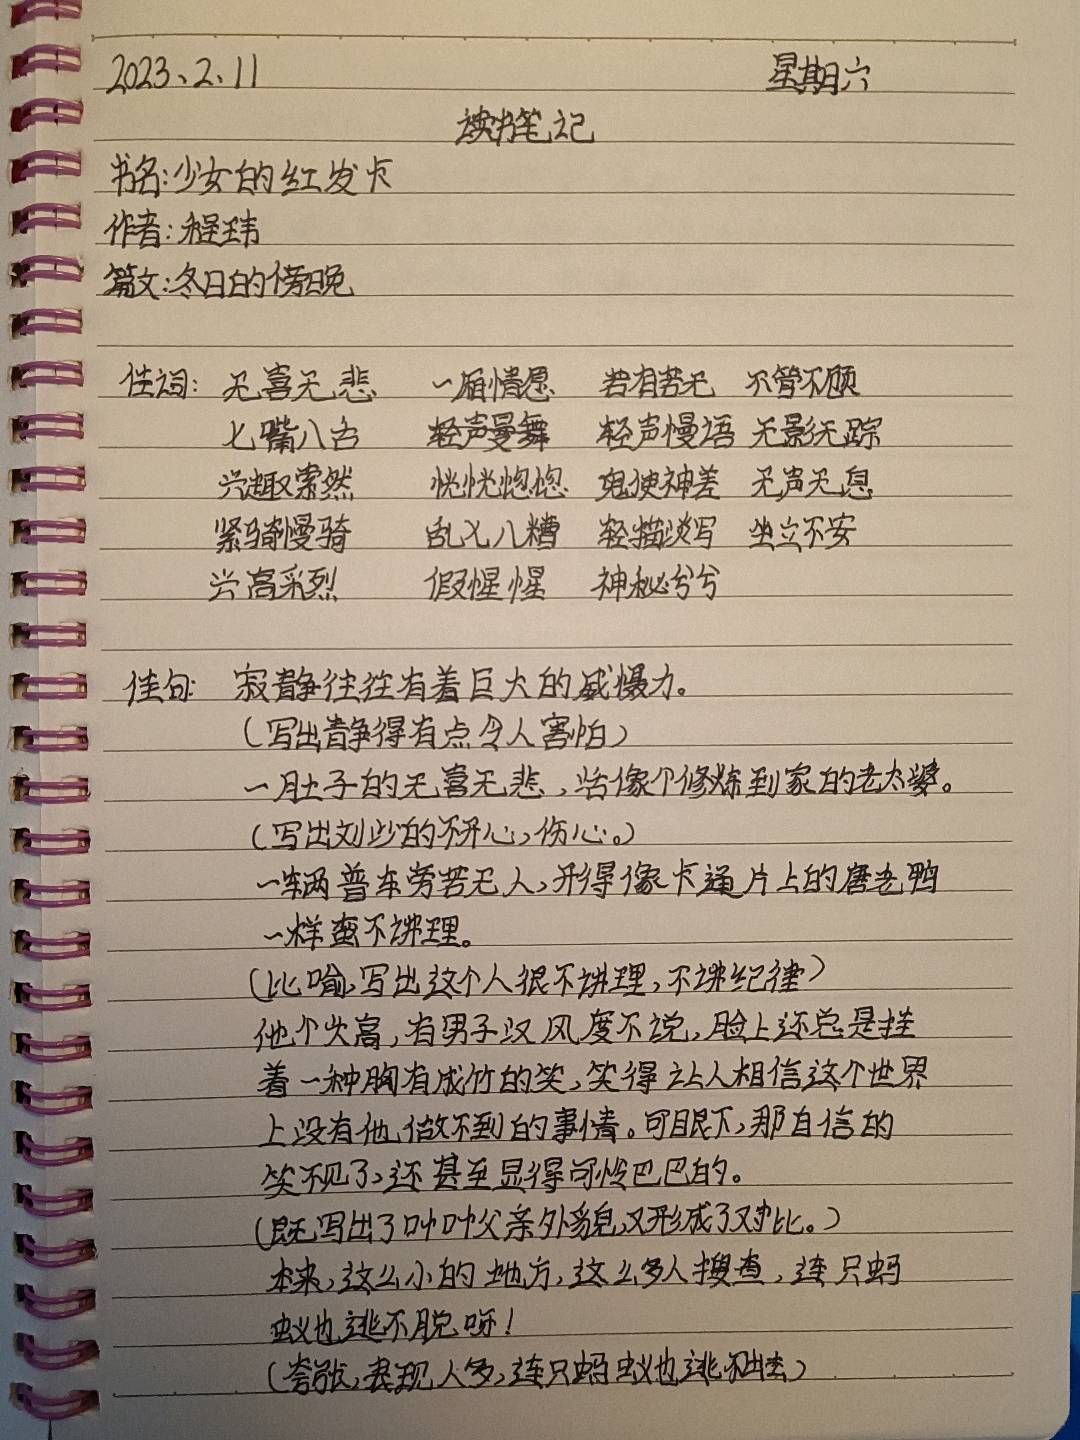 2023、2、11 星期六
读书笔记
书名:少女的红发卡
作者:程玮
篇文:冬日的傍晚
佳词: 无喜无悲 一厢情愿 若有若无 不管不顾
七嘴八舌 轻声曼舞 轻声慢语 无影无踪
兴趣索然 恍恍惚惚 鬼使神差 无声无息
紧骑慢骑 乱七八糟 轻描淡写 坐立不安
兴高采烈 假惺惺 神秘兮兮
佳句: 寂静往往有着巨大的威慑力。
(写出静得有点令人害怕)
一肚子的无喜无悲,活像个修炼到家的老太婆。
(写出刘莎的不开心,伤心。)
一辆普车旁若无人,形得像卡通片上的唐老鸭
一样蛮不讲理。
(比喻,写出这个人很不讲理,不讲纪律)
他个头高,有男子汉风度不说,脸上还总是挂
着一种胸有成竹的笑,笑得让人相信这个世界
上没有他做不到的事情。可眼下,那自信的
笑不见了,还甚至显得可怜巴巴的。
(既写出了叶叶父亲外貌,又形成了对比。)
本来,这么小的地方,这么多人搜查,连只蚂
蚁也逃不脱呀!
(夸张,表现人多,连只蚂蚁也逃不出去)